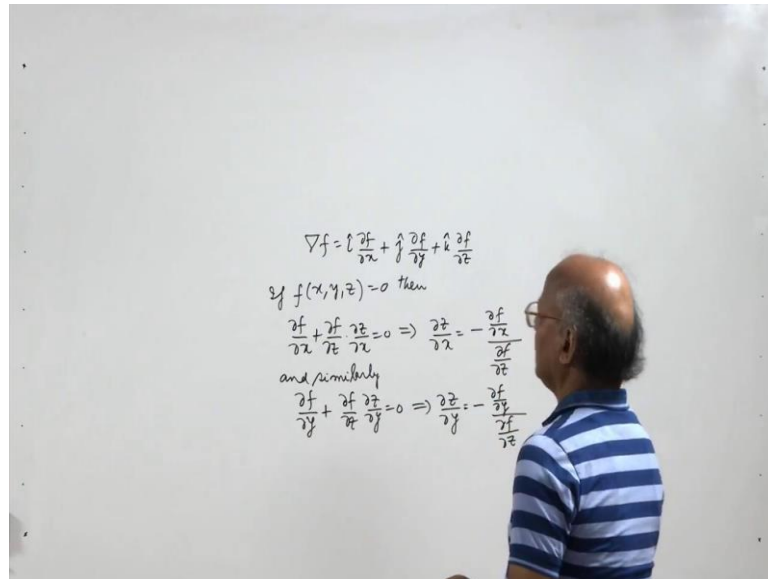 ∇f = î ∂f/∂x + ĵ ∂f/∂y + k̂ ∂f/∂z
If f(x,y,z)=0 then
∂f/∂x + ∂f/∂z · ∂z/∂x = 0 ⇒ ∂z/∂x = - (∂f/∂x)/(∂f/∂z)
and similarly
∂f/∂y + ∂f/∂z ∂z/∂y = 0 ⇒ ∂z/∂y = - (∂f/∂y)/(∂f/∂z)